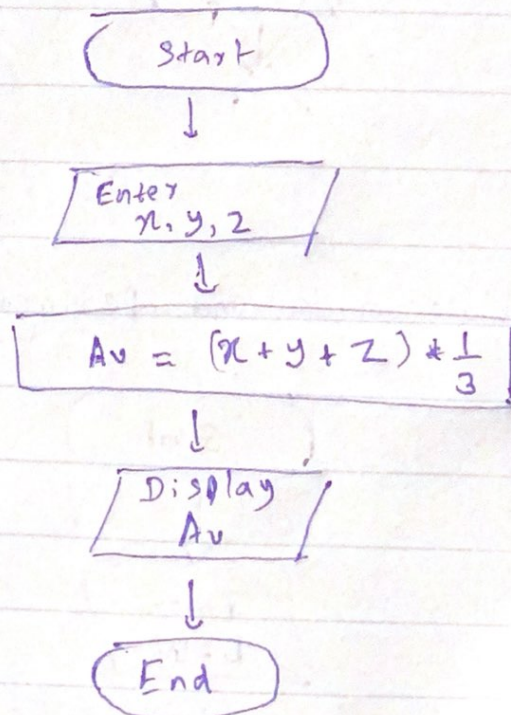 Start
↓
Enter
x, y, z
↓
Av = (x + y + z) * 1/3
↓
Display
Av
↓
End